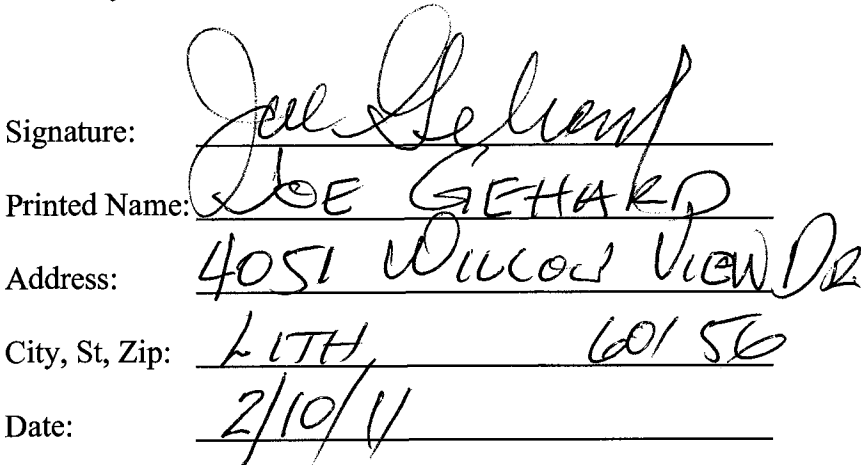 Signature: Joe Gehard
Printed Name: JOE GEHARD
Address: 4051 WILLOW VIEW DR
City, St, Zip: LITH 60156
Date: 2/10/11